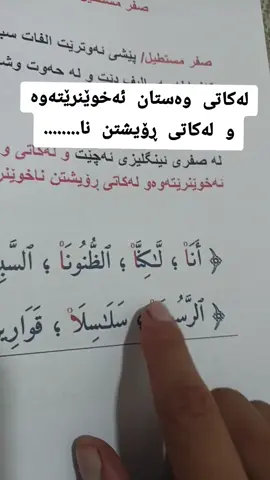 صفر مستطيل
صفر مستطيل/ پێشی ئەوترێت الفات
لەکاتی وەستان ئەخوێنرێتەوە
و لەکاتی ڕۆیشتن نا........
لە صفری ئینگلیزی ئەچێت و لەکاتی
ئەخوێنرێتەوەو لەکاتی ڕۆیشتن ناخوێنر
﴿ أَنَا۠ ؛ لَّٰكِنَّا۠ ؛ ٱلظُّنُونَا۠ ؛ ٱلسَّبِي
ٱلرَّسُو ؛ سَلَٰسِلَا۠ ؛ قَوَارِي